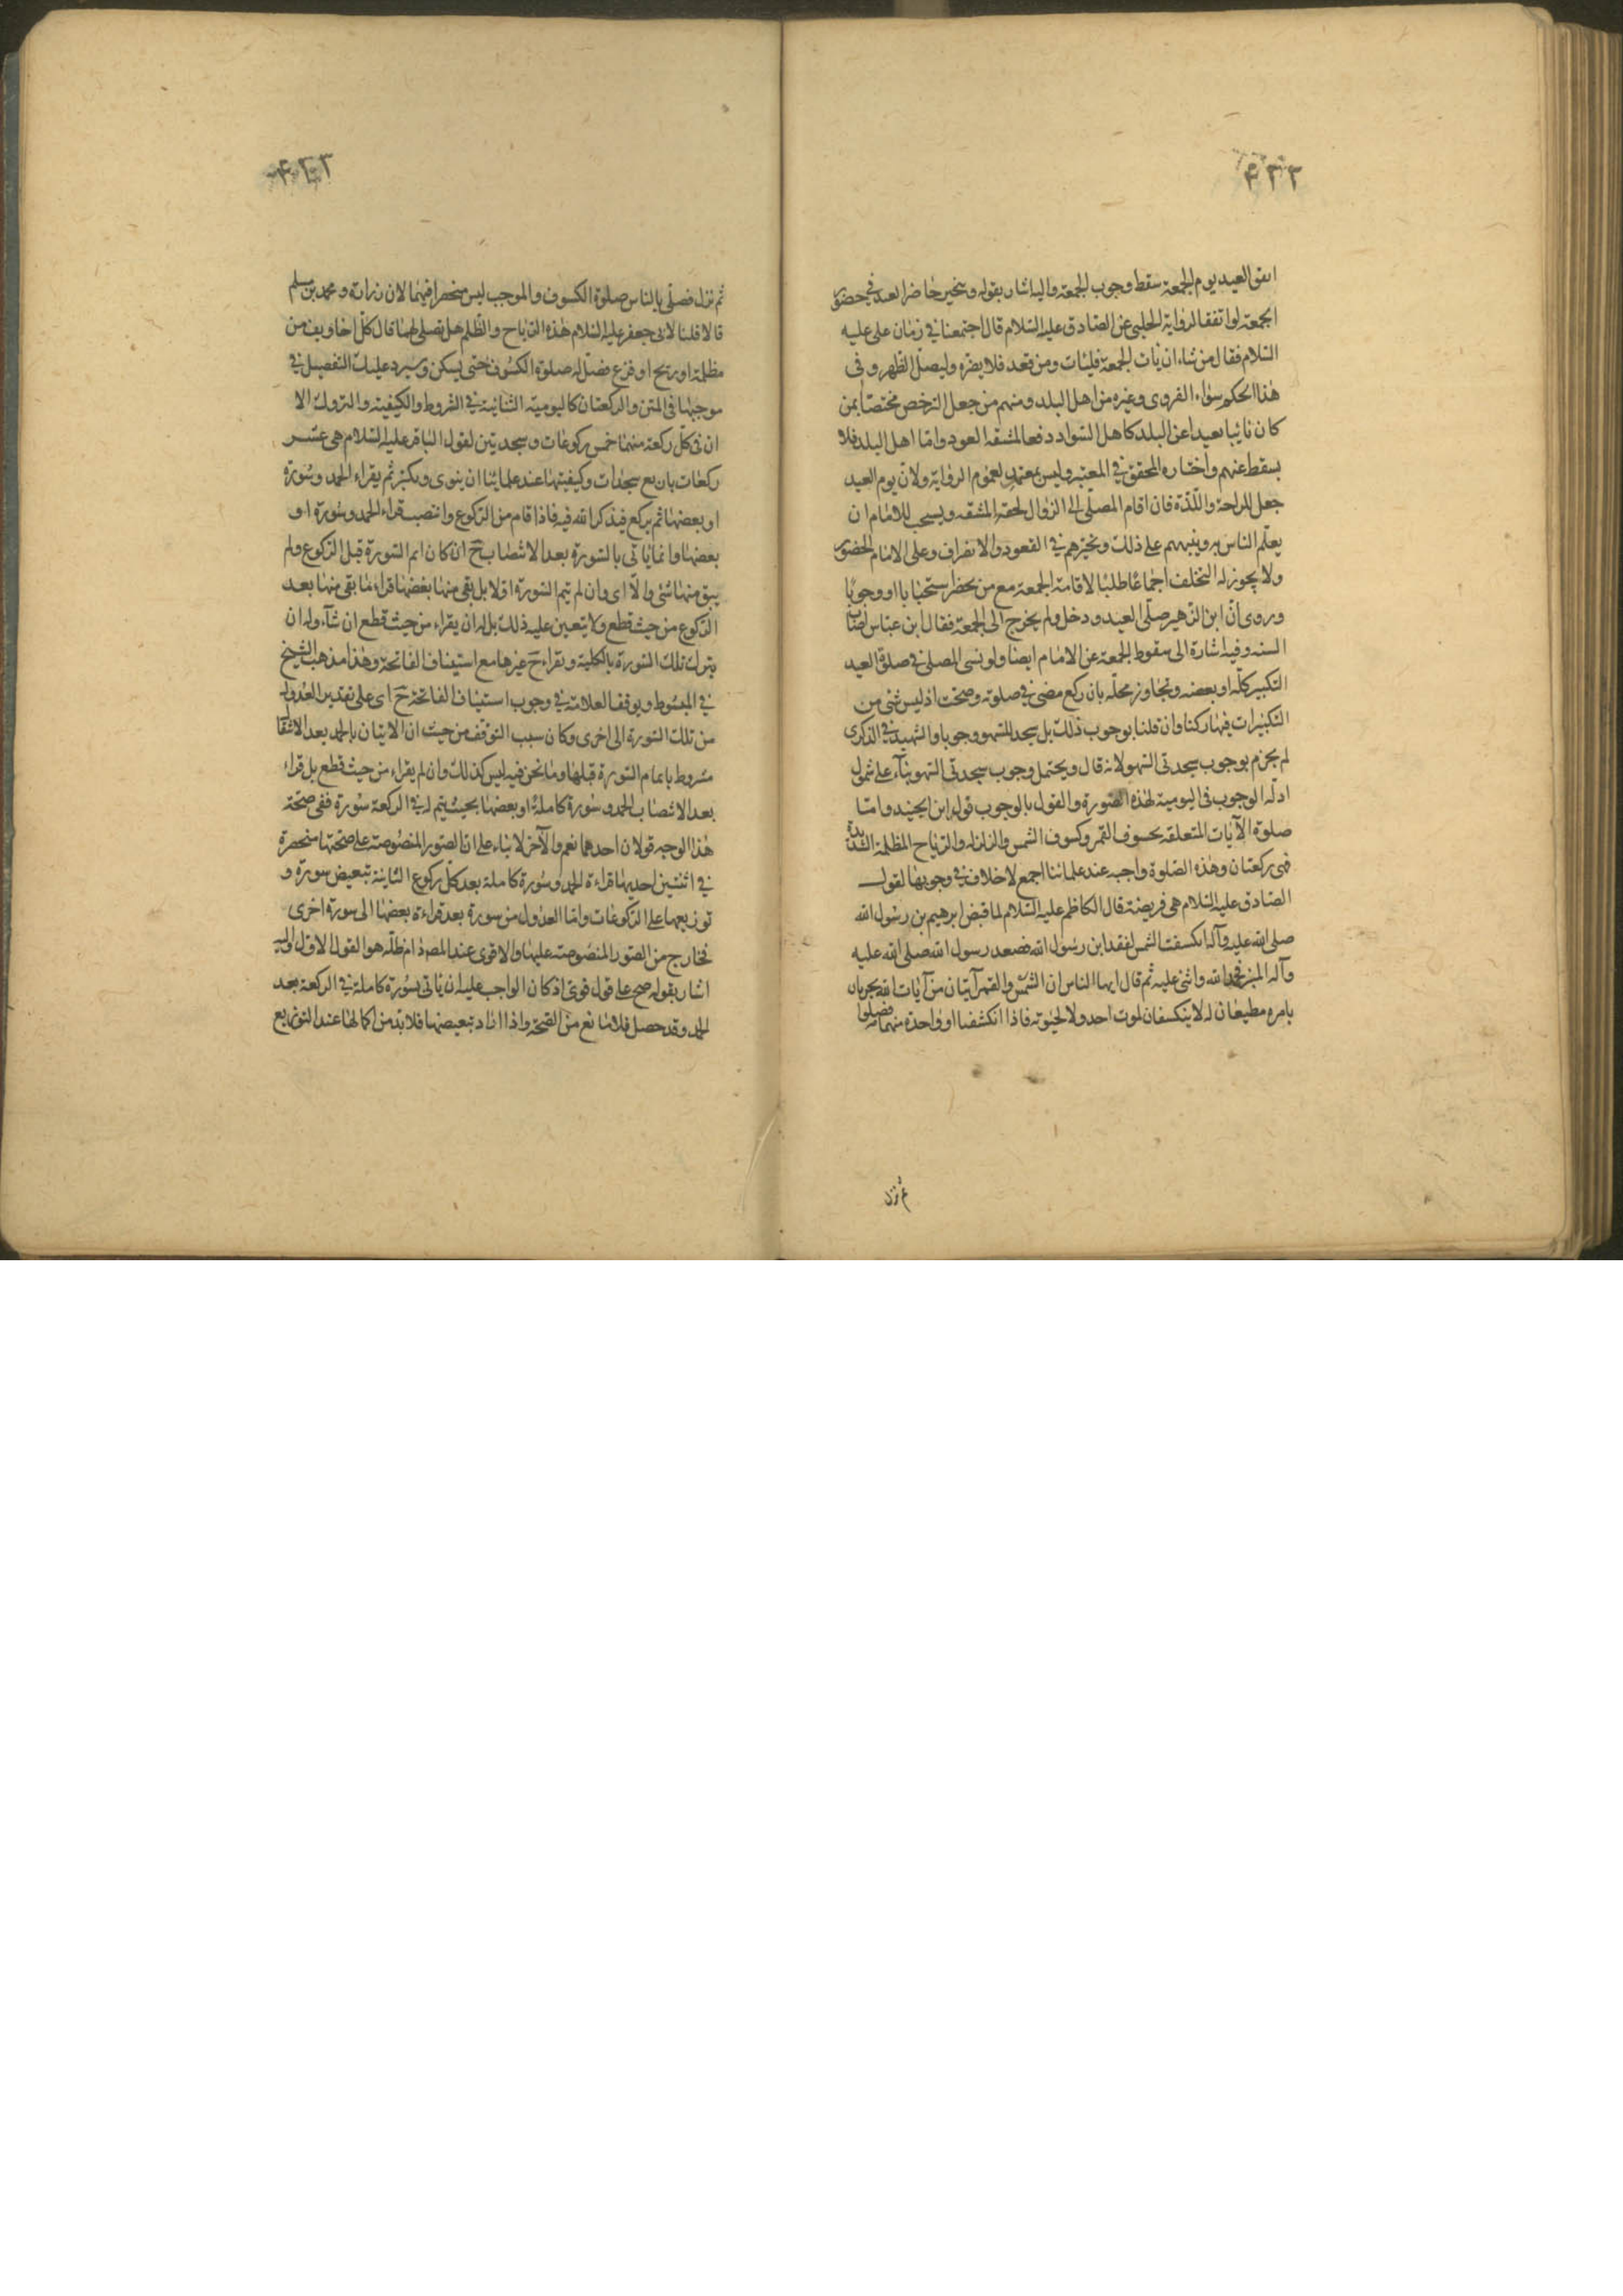 ۴۳۲
اتفق العيد يوم الجمعة سقط وجوب الجمعة واليه اشار بقوله ويتخير حاضر العيد في حضور
الجمعة لو اتفقا لرواية الحلبي عن الصادق عليه السلام قال اجتمعنا في زمان علي عليه
السلام فقال من شاء ان يات الجمعة فليات ومن قعد فلا يضره وليصل الظهر وفى
هذا الحكم سواء القروى وغيره من اهل البلد ومنهم من جعل الترخص مختصا بمن
كان نائيا بعيدا عن البلد كاهل السواد دفعا لمشقه العود واما اهل البلد فلا
يسقط عنهم واختاره المحقق في المعتبر وليس بمعتمد لعموم الرواية ولان يوم العيد
جعل للراحة واللذة فان اقام المصلى الى الزوال لحقه المشقه ويستحب للامام ان
يعلم الناس به وينبههم على ذلك ويخيرهم في القعود والانصراف وعلى الامام الحضور
ولا يجوز له التخلف اجماعا طلبا لاقامة الجمعة مع من يحضر استحبابا او وجوبا
وروى ان ابن الزهير صلى العيد ودخل ولم يخرج الى الجمعة فقال ابن عباس اصاب
السنه وفيه اشارة الى سقوط الجمعة عن الامام ايضا ولو نسى المصلى في صلوة العيد
التكبير كله او بعضه وتجاوز محله بان ركع مضى في صلوته وصحت اذ ليس شئ من
التكبيرات فيها ركنا وان قلنا بوجوب ذلك بل سجد للسهو وجوبا والشهيد في الذكرى
لم يجزم بوجوب سجدتى السهو لانه قال ويحتمل وجوب سجدتى السهو بناء على شمول
ادله الوجوب فى اليومية لهذه الصورة والقول بالوجوب قول ابن الجنيد واما
صلوة الآيات المتعلقه بخسوف القمر وكسوف الشمس والزلزله والرياح المظلمة الشديدة
فهى ركعتان وهذه الصلوة واجبه عند علمائنا اجمع لا خلاف في وجوبها لقول
الصادق عليه السلام هى فريضة قال الكاظم عليه السلام لما قبض ابرهيم بن رسول الله
صلى الله عليه وآله انكسفت الشمس لفقد ابن رسول الله فصعد رسول الله صلى الله عليه
وآله المنبر فحمد الله واثنى عليه ثم قال ايها الناس ان الشمس والقمر آيتان من آيات الله يجريان
بامره مطيعان له لا ينكسفان لموت احد ولا لحيوته فاذا انكسفا او واحدة منهما فصلوا
ثم نزل
۴۳۳
ثم نزل فصلى بالناس صلوة الكسوف والموجب ليس منحصرا فيهما لان زرارة ومحمد بن مسلم
قالا قلنا لابى جعفر عليه السلام هذه الرياح والظلم هل تصلى لها قال كل اخاويف من
مظلمة او ريح او فزع فصل له صلوة الكسوف حتى يسكن وسيرد عليك التفصيل في
موجبها فى المتن والركعتان كاليومية الثنائية في الشروط والكيفية والتروك الا
ان فى كل ركعة منهما خمس ركوعات وسجدتين لقول الباقر عليه السلام هى عشر
ركعات باربع سجدات وكيفيتها عند علمائنا ان ينوى ويكبر ثم يقراء الحمد وسورة
او بعضها ثم يركع فيذكر الله فيه فاذا قام من الركوع وانتصب قراء الحمد وسورة او
بعضها وانما ياتى بالسورة بعد الانتصاب ح ان كان اتم السورة قبل الركوع ولم
يبق منها شئ والا اى وان لم يتم السورة اولا بل بقى منها بعضها قراء ما بقى منها بعد
الركوع من حيث قطع ولا يتعين عليه ذلك بل له ان يقراء من حيث قطع ان شآء وله ان
يترك تلك السورة بالكلية ويقراء ح غيرها مع استيناف الفاتحة وهذا مذهب الشيخ
في المبسوط ويوقف العلامة في وجوب استيناف الفاتحة ح اى على تقدير العدول
من تلك السورة الى اخرى وكان سبب التوقف من حيث ان الاتيان بالحمد بعد الانتصا
مشروط باتمام السورة قبلها وما نحن فيه ليس كذلك وان لم يقراء من حيث قطع بل قراء
بعد الانتصاب الحمد وسورة كاملة او بعضها بحيث يتم له في الركعة سورة ففى صحة
هذا الوجه قولان احدهما نعم والآخر لا بناء على ان الصور المنصوصة على صحتها منحصرة
في اثنتين احديهما قراءة الحمد وسورة كاملة بعد كل ركوع الثانية تبعيض سورة و
توزيعها على الركوعات واما العدول من سورة بعد قراءة بعضها الى سورة اخرى
فخارج من الصور المنصوصة عليها والاقوى عند المصر دام ظله هو القول الاول واليه
اشار بقوله صح على قول قوى اذ كان الواجب عليه ان ياتى بسورة كاملة في الركعة بعد
الحمد وقد حصل فلا مانع من الصحة واذا اراد تبعيضها فلا بد من اكمالها عند التوزيع